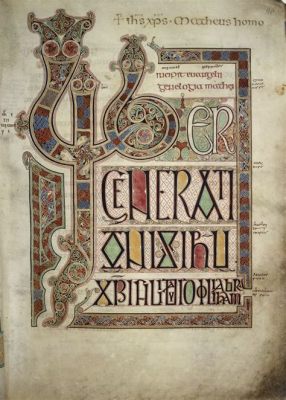 + ihs xps. Matheus homo
incipit euangelii
genelogia mathei
LIBER
GENERATI
ONIS IHU
XPI FILII DAUID FILII ABRAHAM